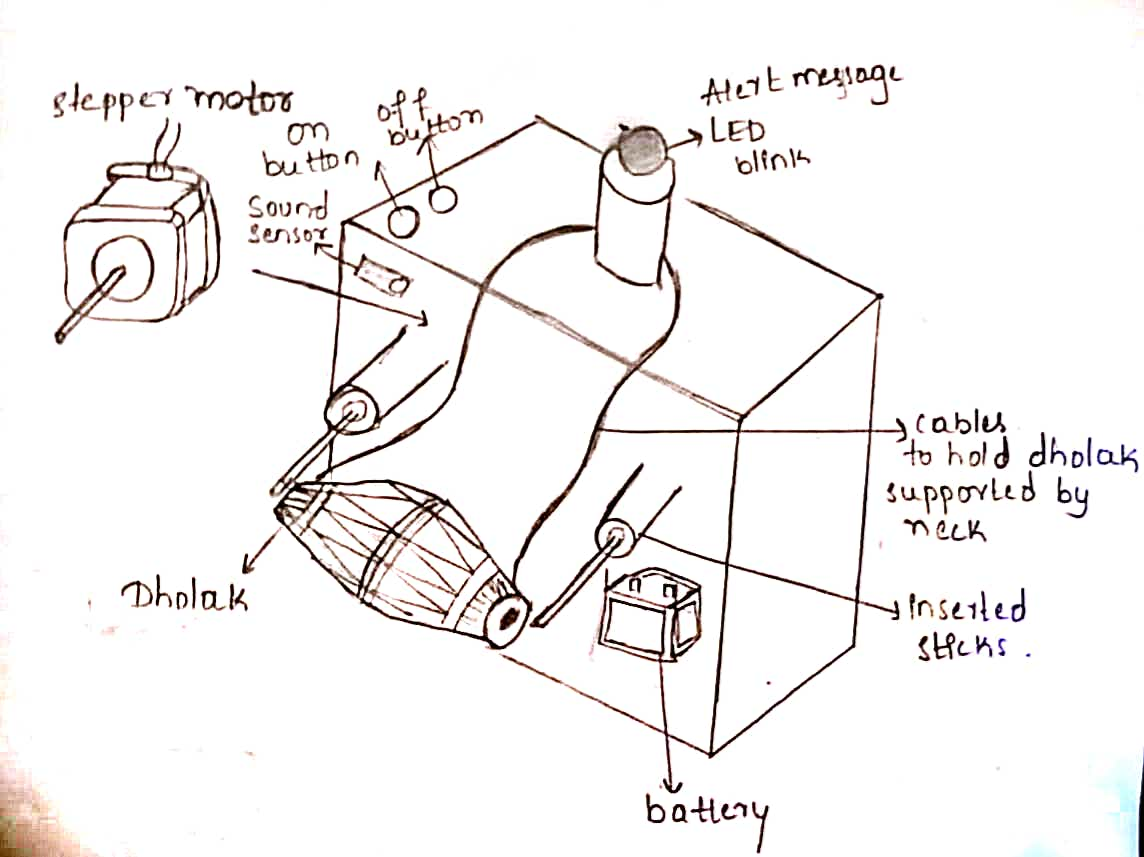 stepper motor
on
button
off
button
Sound
sensor
Alert message
LED
blink
cables
to hold dholak
supported by
neck
Dholak
inserted
sticks.
battery